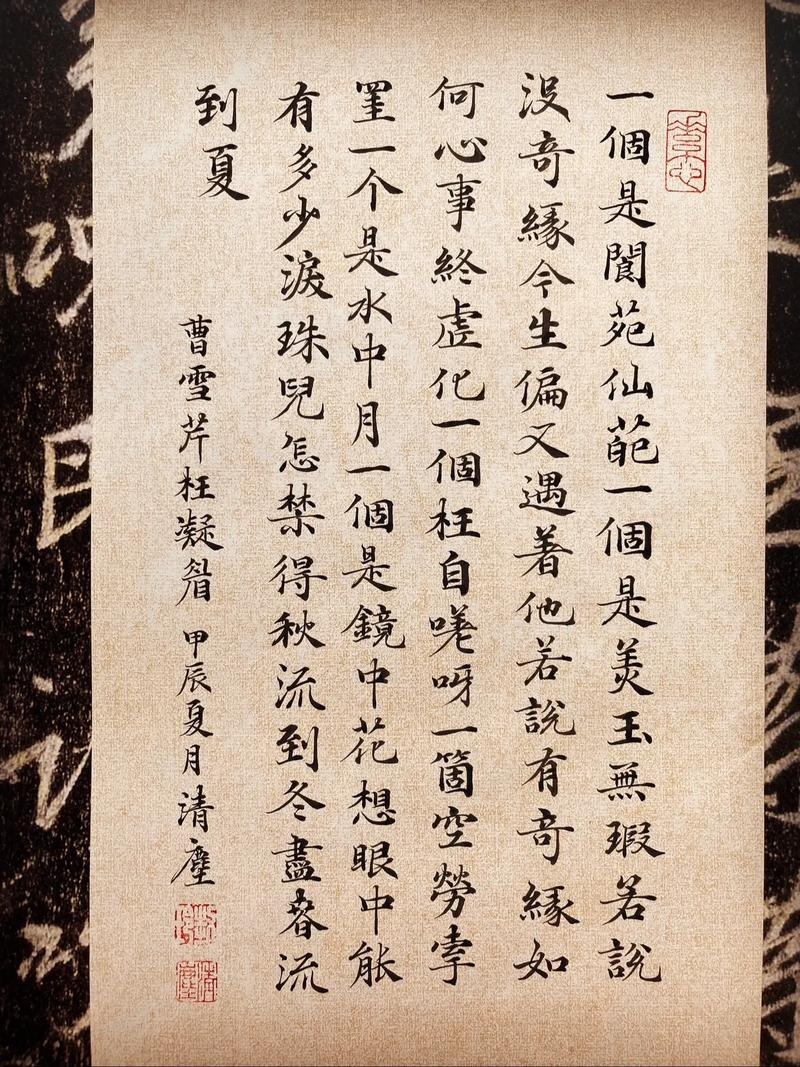 一個是閬苑仙葩一個是美玉無瑕若說
没奇緣今生偏又遇著他若說有奇緣如
何心事終虛化一個枉自嗟呀一箇空勞牽
罣一个是水中月一個是鏡中花想眼中能
有多少淚珠兒怎禁得秋流到冬盡春流
到夏
曹雪芹枉凝眉 甲辰夏月清塵